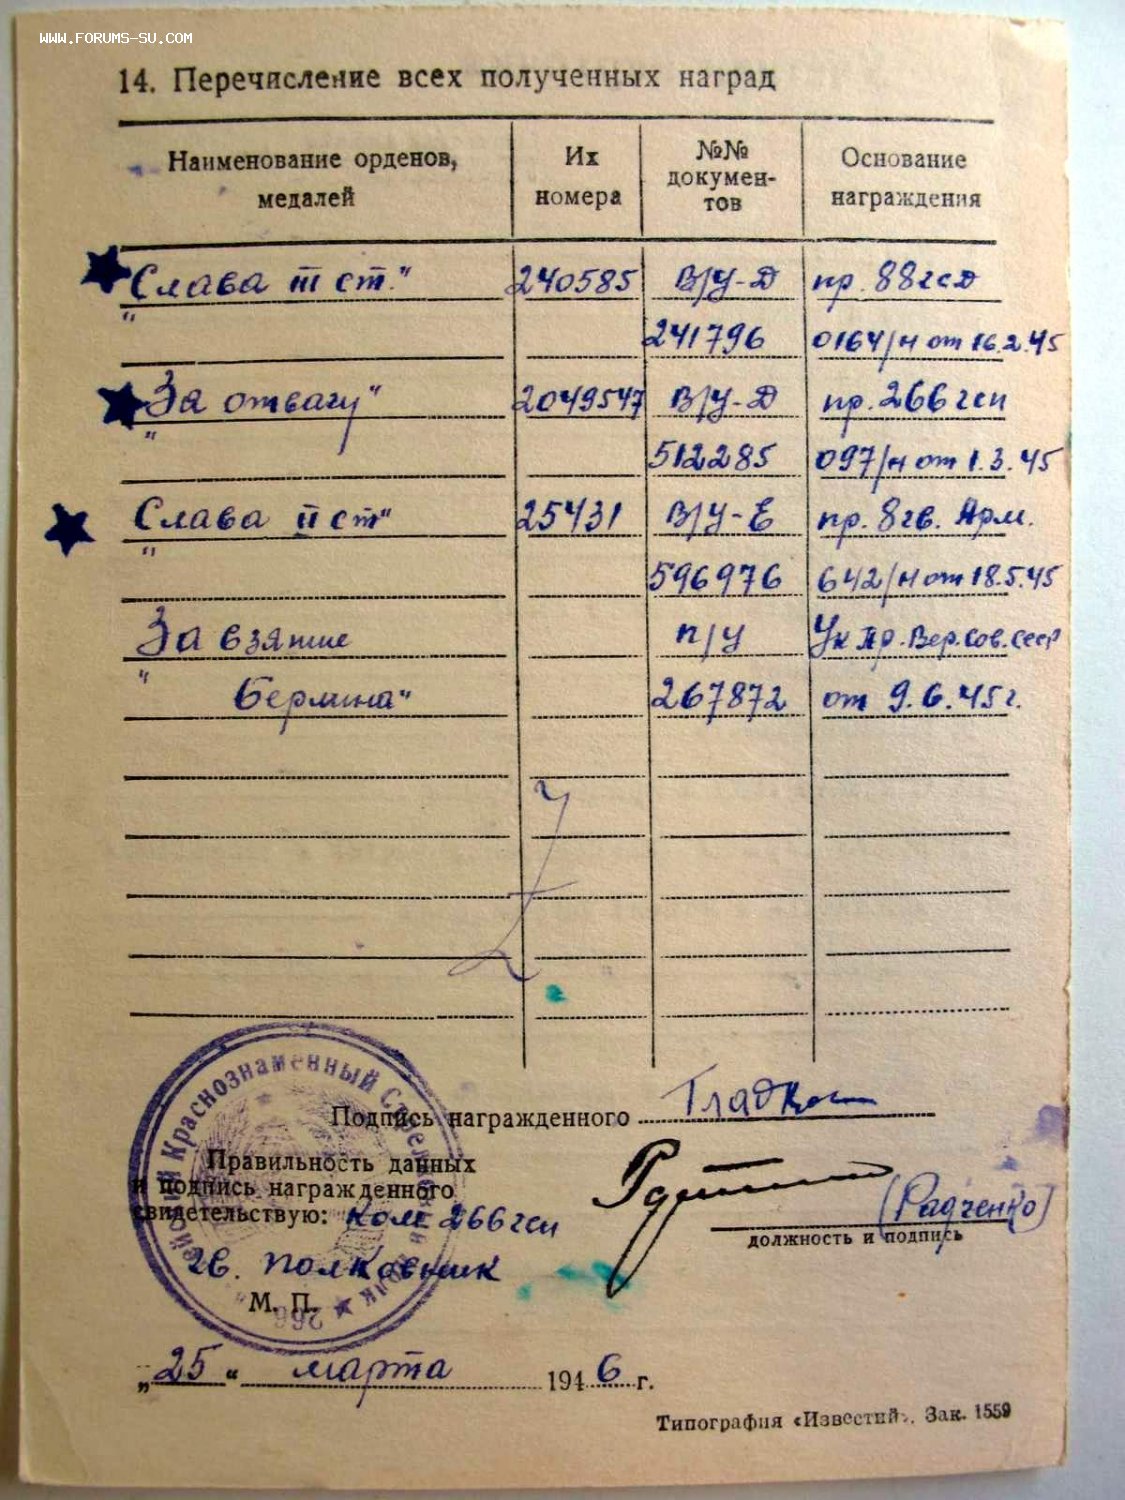 WWW.FORUMS-SU.COM
14. Перечисление всех полученных наград
Наименование орденов, медалей
Их номера
№№ докумен-тов
Основание награждения
„Слава III ст." 240585 В/У-Д пр. 88гсд
241796 0164/н от 16.2.45
„За отвагу" 2049547 В/У-Д пр. 266 гсп
512285 097/н от 1.3.45
„Слава II ст" 25431 В/У-Е пр. 8гв. Арм.
596976 642/н от 18.5.45
„За взятие п/у Ук Пр. Вер. Сов. СССР
Берлина" 267872 от 9.6.45г.
Z
Подпись награжденного
Правильность данных
и подпись награжденного
свидетельствую: Ком 266 гсп
(Радченко)
должность и подпись
гв. полковник
М. П.
Краснознаменный
полк ★ 266
„25" марта 1946 г.
Типография «Известий». Зак. 1559